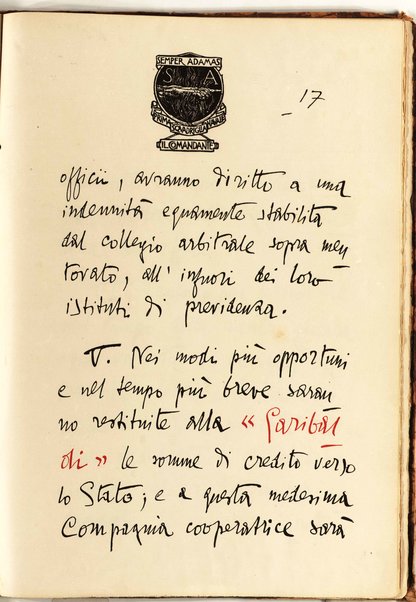 SEMPER ADAMAS
S A
PRIMA SQUADRIGLIA NAVALE
IL COMANDANTE
– 17
officii, avranno diritto a una
indennità equamente stabilita
dal collegio arbitrale sopra men
tovato, all' infuori dei loro
istituti di previdenza.
V. Nei modi più opportuni
e nel tempo più breve saran
no restituite alla « Garibal
di » le somme di credito verso
lo Stato; e a questa medesima
Compagnia cooperatrice sarà